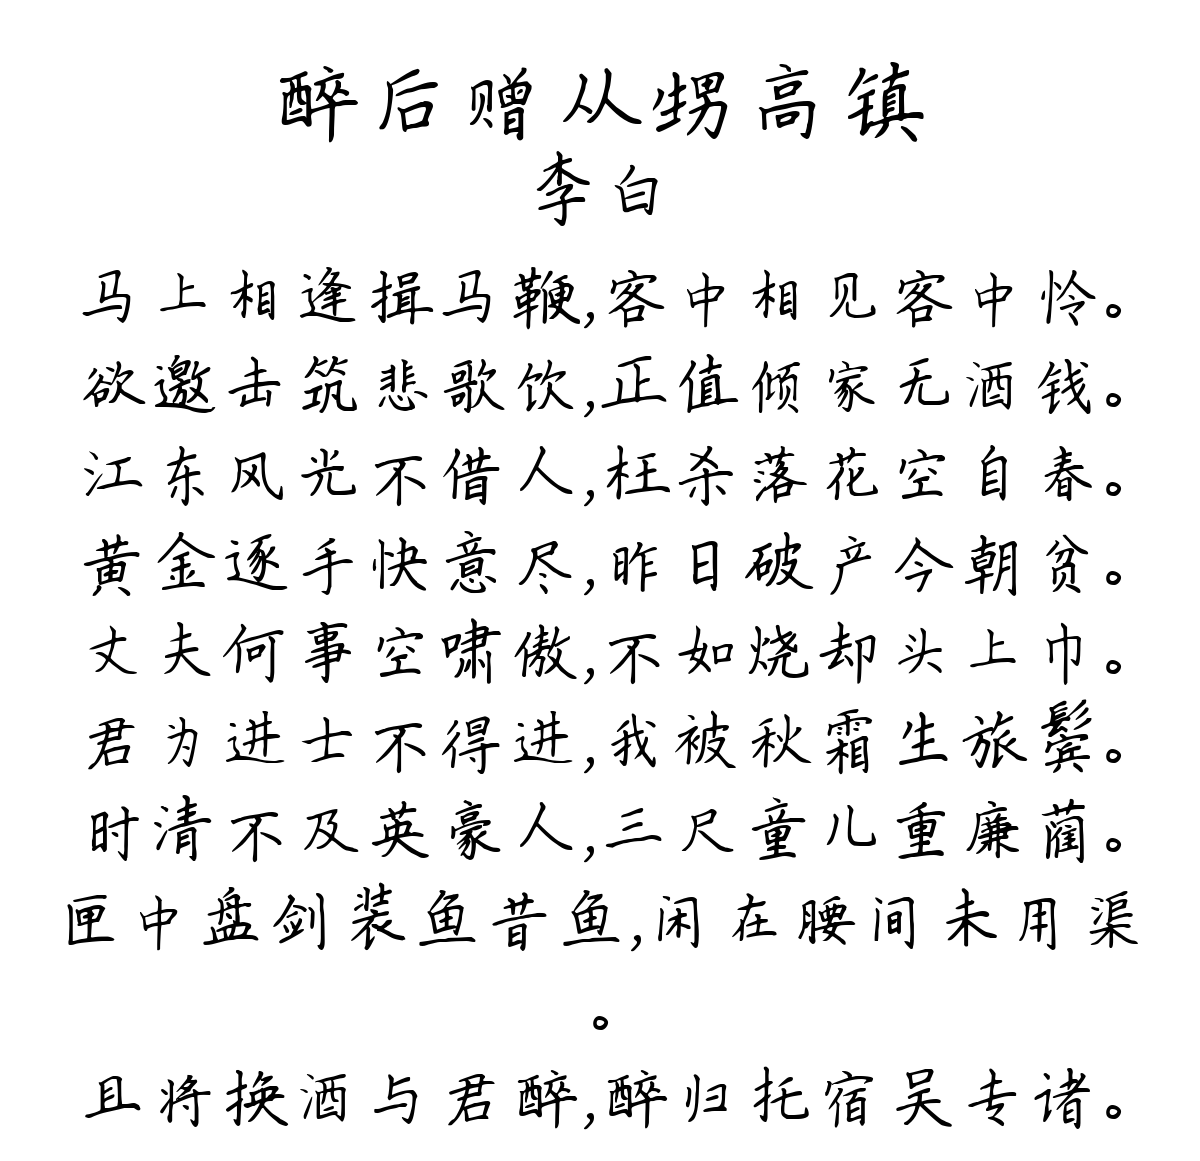 醉后赠从甥高镇
李白
马上相逢揖马鞭,客中相见客中怜。
欲邀击筑悲歌饮,正值倾家无酒钱。
江东风光不借人,枉杀落花空自春。
黄金逐手快意尽,昨日破产今朝贫。
丈夫何事空啸傲,不如烧却头上巾。
君为进士不得进,我被秋霜生旅鬓。
时清不及英豪人,三尺童儿重廉蔺。
匣中盘剑装鱼昔鱼,闲在腰间未用渠
。
且将换酒与君醉,醉归托宿吴专诸。